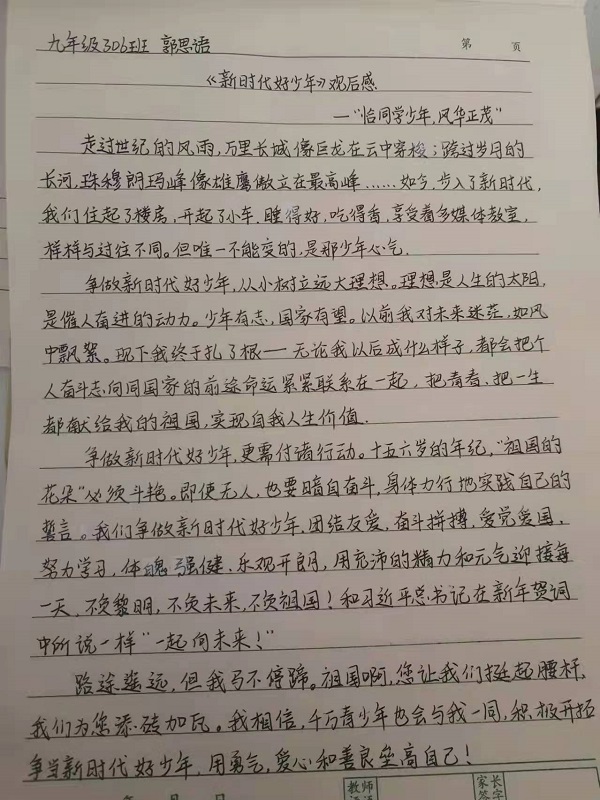 九年级306班 郭思语
第 页
《新时代好少年》观后感
—"恰同学少年,风华正茂"
走过世纪的风雨,万里长城像巨龙在云中穿梭;跨过岁月的
长河,珠穆朗玛峰像雄鹰傲立在最高峰……如今,步入了新时代,
我们住起了楼房,开起了小车,睡得好,吃得香,享受着多媒体教室,
样样与过往不同。但唯一不能变的,是那少年心气。
争做新时代好少年,从小树立远大理想。理想是人生的太阳,
是催人奋进的动力。少年有志,国家有望。以前我对未来迷茫,如风
中飘絮。现下我终于扎了根——无论我以后成什么样子,都会把个
人奋斗志向同国家的前途命运紧紧联系在一起,把青春、把一生
都献给我的祖国,实现自我人生价值.
争做新时代好少年,更需付诸行动。十五六岁的年纪,"祖国的
花朵"必须斗艳。即便无人,也要暗自奋斗,身体力行地实践自己的
誓言。我们争做新时代好少年,团结友爱,奋斗拼搏,爱党爱国,
努力学习,体魄强健、乐观开朗,用充沛的精力和元气迎接每
一天,不负黎明,不负未来,不负祖国!和习近平总书记在新年贺词
中所说一样"一起向未来!"
路途遥远,但我马不停蹄。祖国啊,您让我们挺起腰杆,
我们为您添砖加瓦。我相信,千万青少年也会与我一同,积极开拓
争当新时代好少年,用勇气,爱心和善良垒高自己!
年 月 日
教师
评语
家长
签字